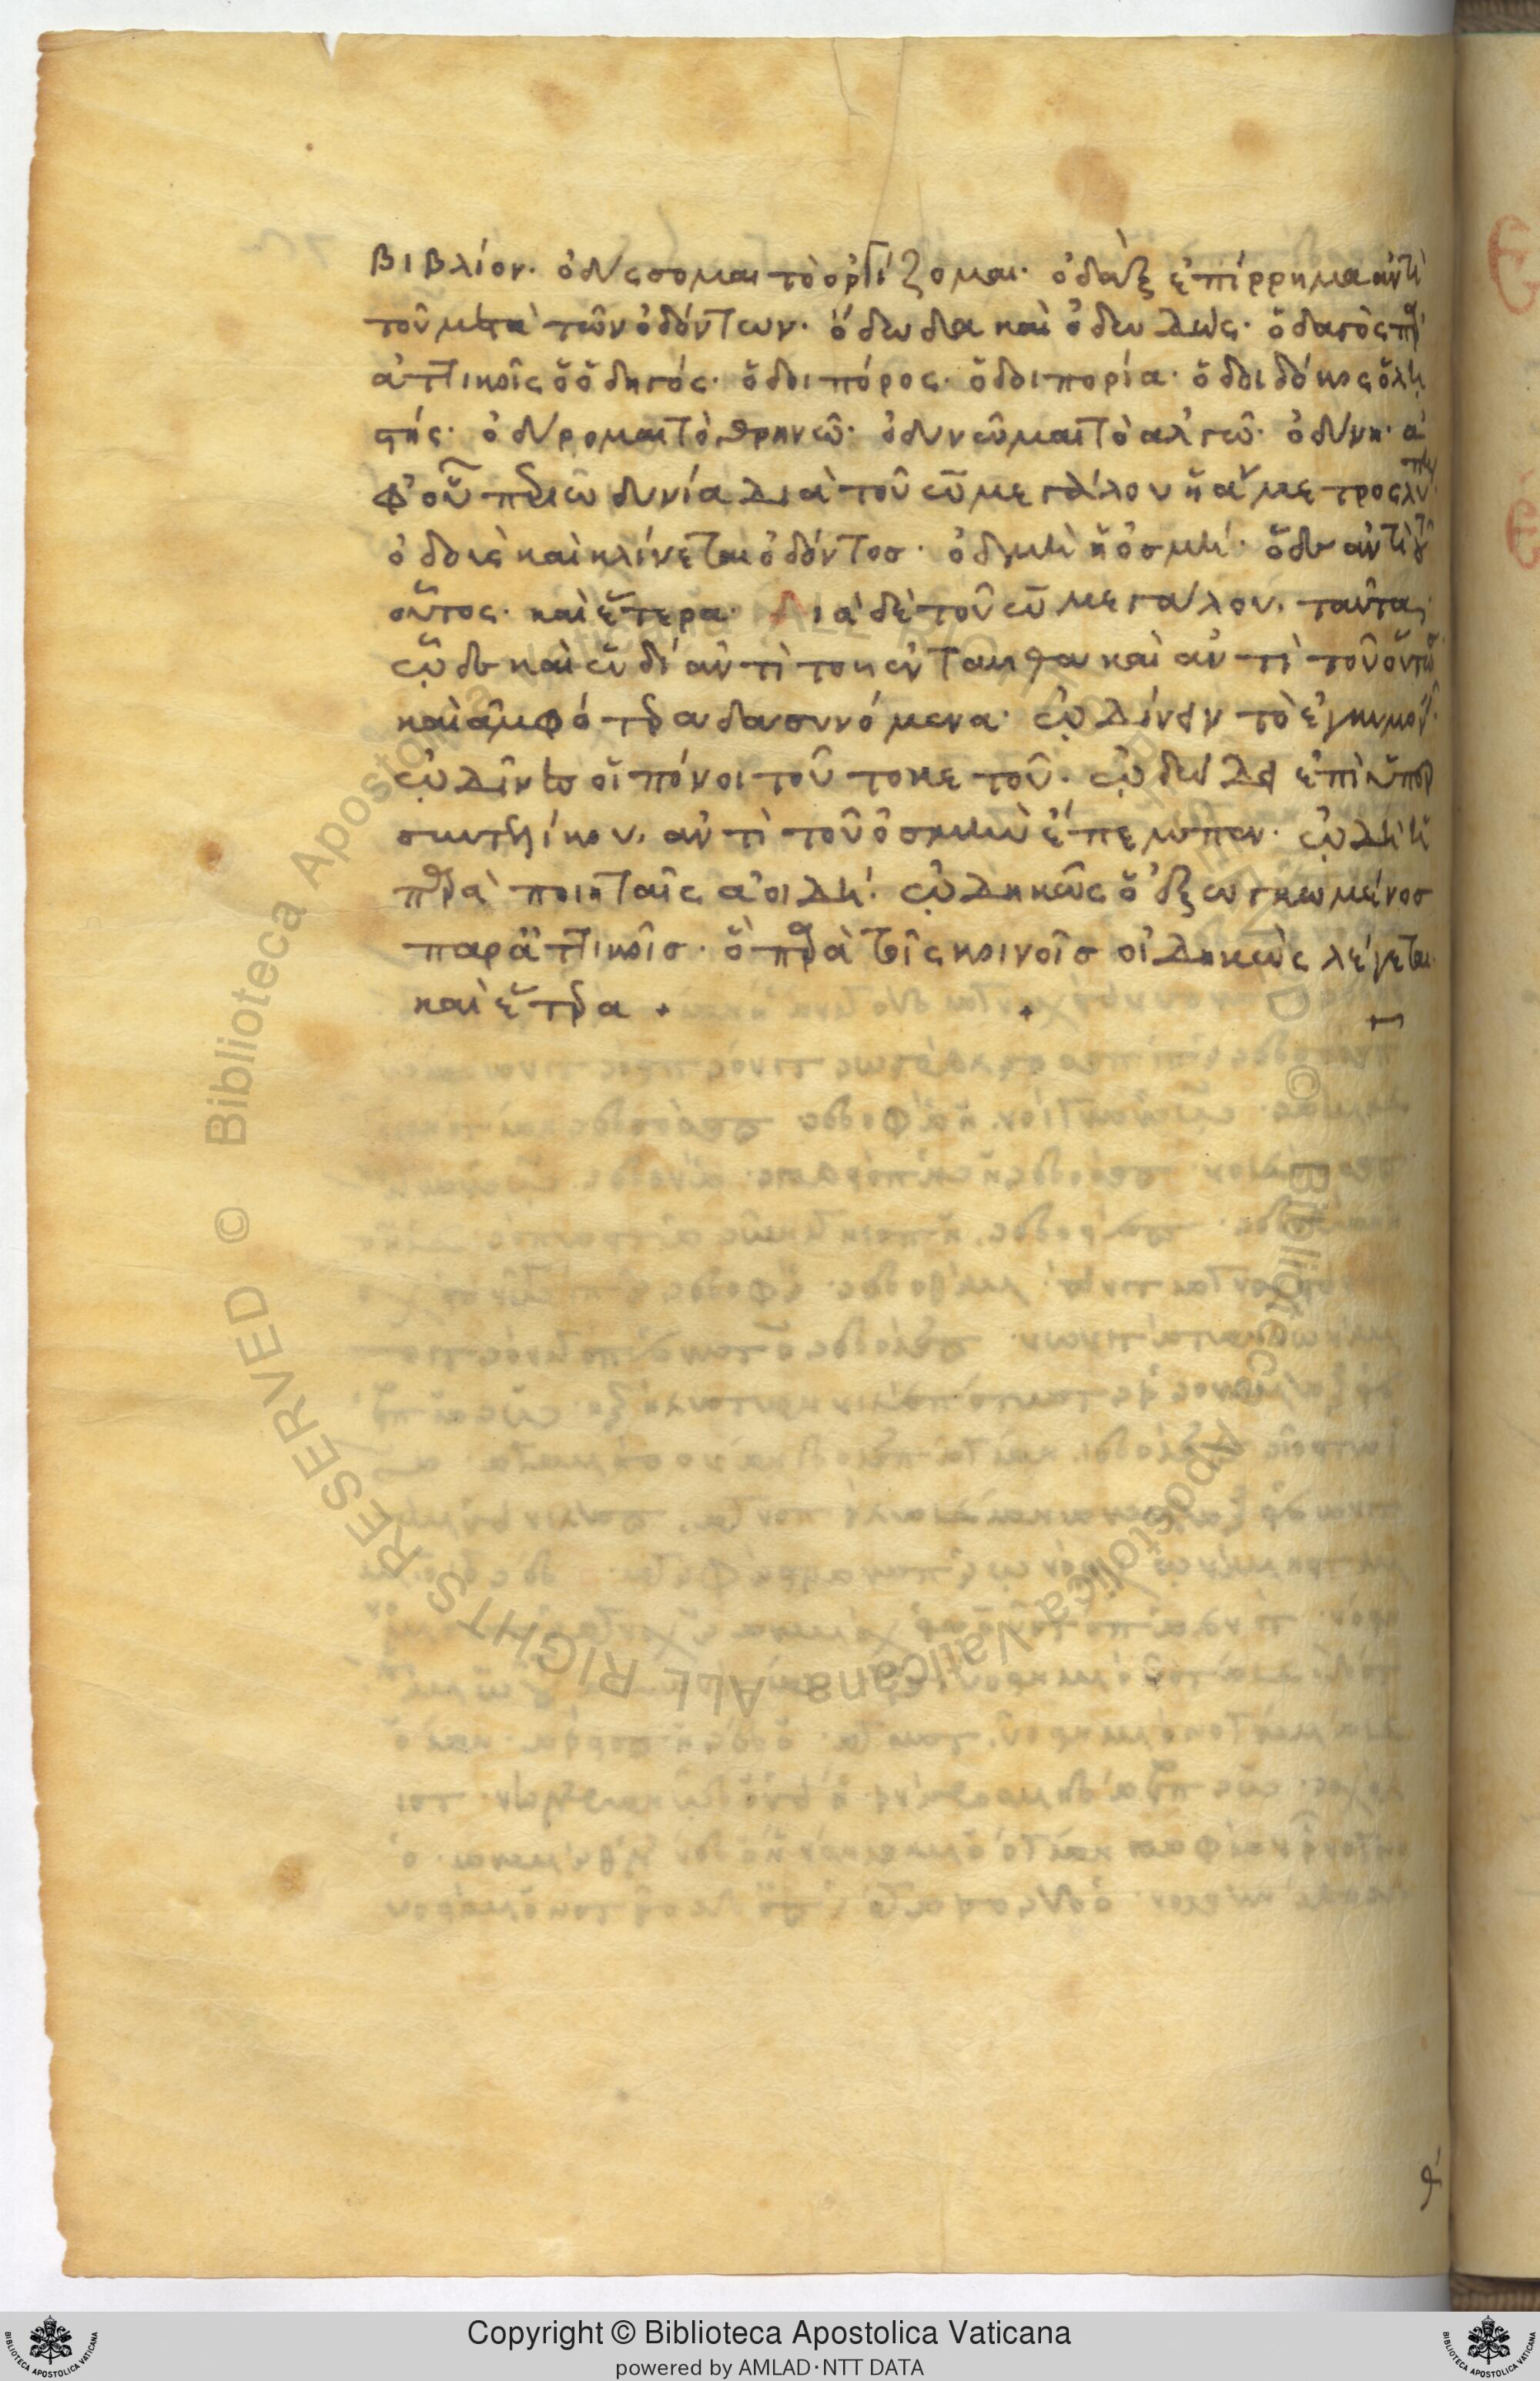 βιβλίον. ὀδύσσομαι τὸ ὀργίζομαι. ὀδὰξ ἐπίρρημα ἀντὶ
τοῦ μετὰ τῶν ὀδόντων. ὄδωδα καὶ ὀδωδώς. ὁδαγὸς παρ'
ἀττικοῖς ὁ ὁδηγός. ὁδοιπόρος. ὁδοιπορία. ὁδοιδόκος ὁ λῃ
στής. ὀδύρομαι τὸ θρηνῶ. ὀδυνῶμαι τὸ ἀλγῶ. ὀδύνη. ἀ
φ' οὗ περιωδυνία διὰ τοῦ ω μεγάλου ἡ ἄμετρος λύπη.
ὀδοὺς καὶ κλίνεται ὀδόντος. ὀδμὴ ἡ ὀσμή. ὅδε ἀντὶ τοῦ
οὗτος. καὶ ἕτερα. Διὰ δὲ τοῦ ω μεγάλου, ταῦτα.
ὧδε καὶ ὡδὶ ἀντὶ τοῦ ἐνταυθα καὶ ἀντὶ τοῦ οὕτως
καὶ ἀμφότερα δασυνόμενα. ὠδίνειν τὸ ἐγκυμονεῖν.
ὠδῖνες οἱ πόνοι τοῦ τοκετοῦ. ὠδώδει ἐπὶ ὑπερ
συντελίκου, ἀντὶ τοῦ ὀσμὴν ἔπεμπεν. ὠδὴ ἡ
παρὰ ποιηταῖς ἀοιδή. ὠδηκῶς ὁ ἐξωγκωμένος
παρ' ἀττικοῖς. ὃ παρὰ τοῖς κοινοῖς οἰδηκὼς λέγεται.
καὶ ἕτερα +
Copyright © Biblioteca Apostolica Vaticana
powered by AMLAD·NTT DATA